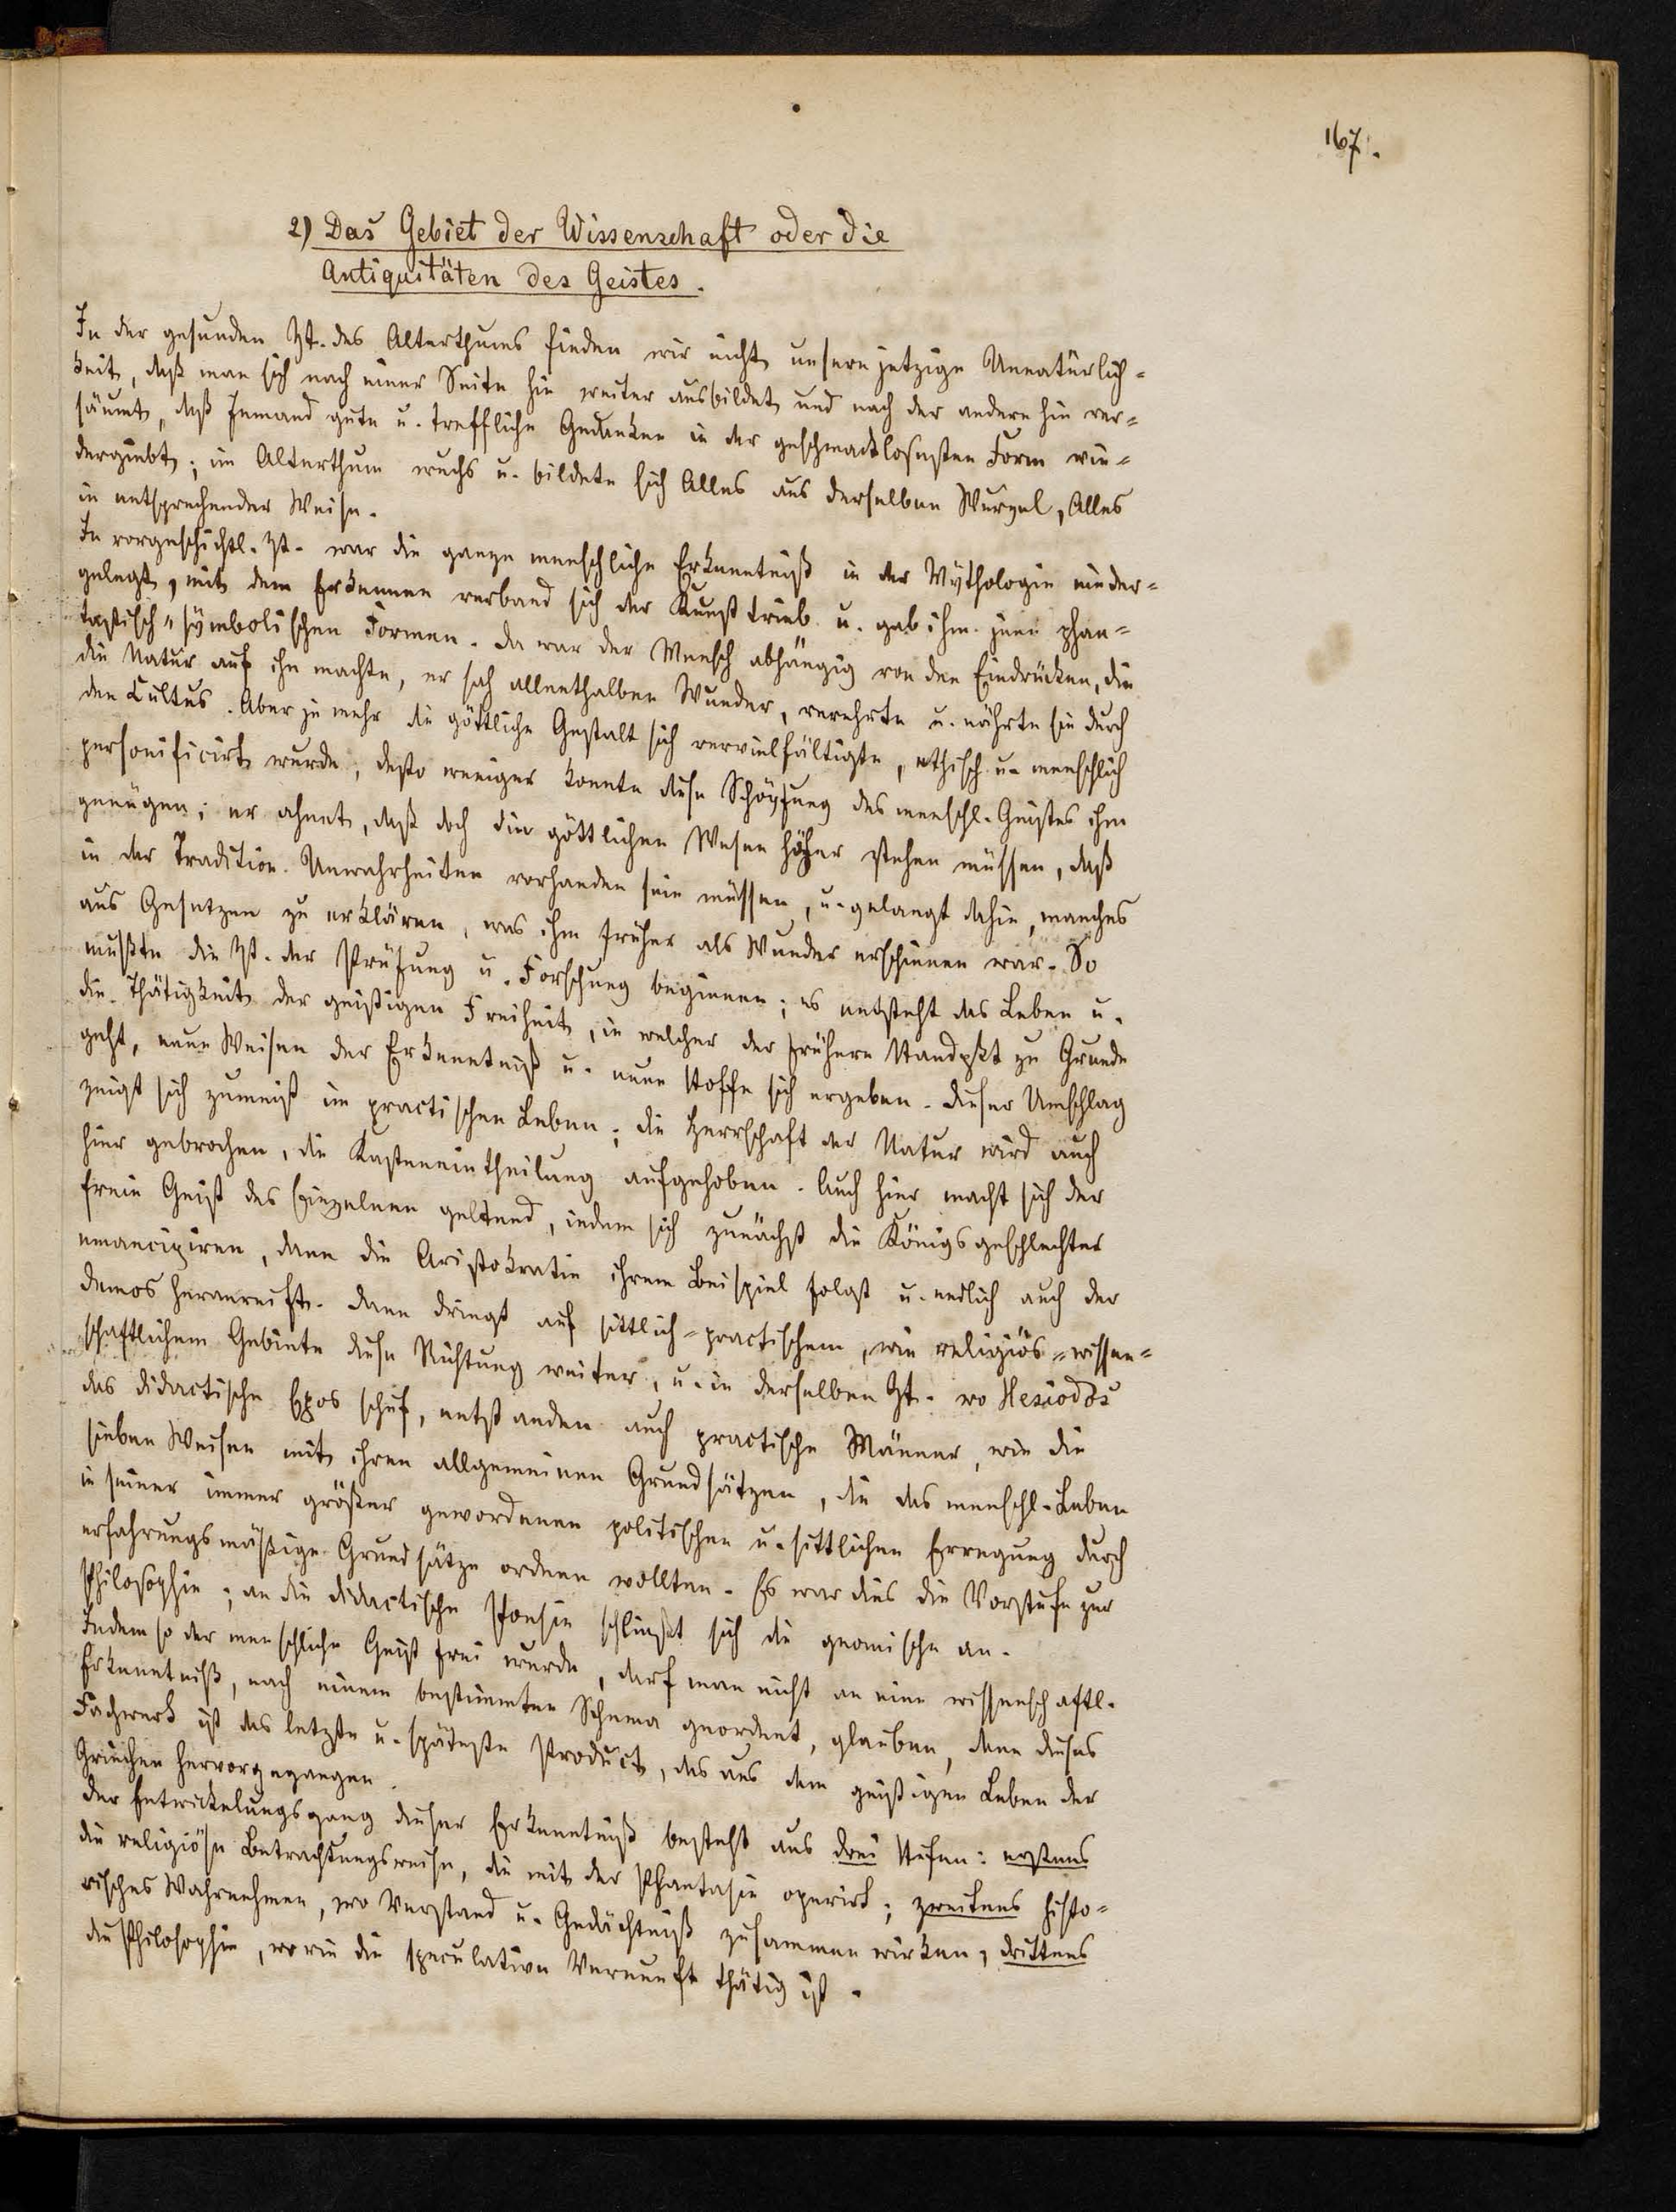 167.
2) Das Gebiet der Wissenschaft oder die
Antiquitäten des Geistes.
In der gesunden Zt. des Alterthums finden wir nicht unsere jetzige Unnatürlich-
keit, daß man sich nach einer Seite hin weiter ausbildet und nach der andern hin ver-
säumt, daß Jemand gute u. treffliche Gedanken in der geschmacklosesten Form wie-
dergiebt; im Alterthum wuchs u. bildete sich Alles aus derselben Wurzel, Alles
in entsprechender Weise.
In vorgeschichtl. Zt. war die ganze menschliche Erkenntniß in der Mythologie nieder-
gelegt, mit dem Erkennen verband sich der Kunsttrieb u. gab ihm jene phan-
tastisch-symbolischen Formen. Da war der Mensch abhängig von den Eindrücken, die
die Natur auf ihn machte, er sah allenthalben Wunder, verehrte u. nährte sie durch
den Cultus. Aber je mehr die göttliche Gestalt sich vervielfältigte, ethisch u. menschlich
personificirt wurde, desto weniger konnte diese Schöpfung des menschl. Geistes ihm
genügen; er ahnet, daß doch die göttlichen Wesen höher stehen müssen, daß
in der Tradition Unwahrheiten vorhanden sein müssen, u. gelangt dahin, manches
aus Gesetzen zu erklären, was ihm früher als Wunder erschienen war. So
mußte die Zt. der Prüfung u. Forschung beginnen; es entsteht das Leben u.
die Thätigkeit der geistigen Freiheit, in welcher der frühere Standpkt zu Grunde
geht, neue Weisen der Erkenntniß u. neue Stoffe sich ergeben. Dieser Umschlag
zeigt sich zumeist im practischen Leben; die Herrschaft der Natur wird auch
hier gebrochen, die Kasteneintheilung aufgehoben. Auch hier macht sich der
freie Geist des Einzelnen geltend, indem sich zunächst die Königsgeschlechter
emancipiren, dann die Aristokratie ihrem Beispiel folgt u. endlich auch der
Demos heranreift. Dann dringt auf sittlich-practischem, wie religiös-wissen-
schaftlichem Gebiete diese Richtung weiter, u. in derselben Zt. wo Hesiodos
das didactische Epos schuf, entstanden auch practische Männer, wie die
sieben Weisen mit ihren allgemeinen Grundsätzen, die das menschl. Leben
in seiner immer größer gewordenen politischen u. sittlichen Erregung durch
erfahrungsmäßige Grundsätze ordnen wollten. Es war dies die Vorstufe zur
Philosophie; an die didactische Poesie schließt sich die gnomische an.
Indem so der menschliche Geist frei wurde, darf man nicht an eine wissenschaftl.
Erkenntniß, nach einem bestimmten Schema geordnet, glauben, denn dieses
Fachwerk ist das letzte u. späteste Product, das aus dem geistigen Leben der
Griechen hervorgegangen.
Der Entwickelungsgang dieser Erkenntniß besteht aus drei Stufen: erstens
die religiöse Betrachtungsweise, die mit der Phantasie operirt; zweitens histo-
risches Wahrnehmen, wo Verstand u. Gedächtniß zusammen wirken, drittens
die Philosophie, worin die speculative Vernunft thätig ist.